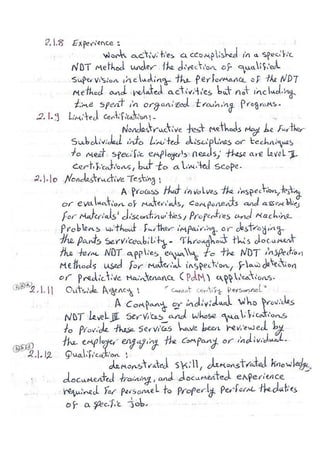 2.1.8 Experience :
Work activities accomplished in a specific
NDT Method under the direction of qualified
Supervision including the performance of the NDT
Method and related activities but not including
time spent in organized training Programs.
2.1.9 Limited Certification:-
Nondestructive test methods may be further
Subdivided into Limited disciplines or techniques
to meet specific employer's needs; these are level II
Certifications, but to a limited scope.
2.1.10 Nondestructive Testing :
A Process that involves the inspection, testing
or evaluation of materials, Components and assemblies
for Materials' discontinuities, Properties and Machine
Problems without further impairing or destroying
the Parts Serviceability - Throughout this document
the term NDT applies equally to the NDT inspection
Methods used for Material inspection, flaw detection
or Predictive Maintenance (PdM) applications.
2.1.11 Outside Agency : "cannot certify Personnel"
A Company or individual who provides
NDT level III Services and whose qualifications
to Provide these Services have been reviewed by
the employer engaging the Company or individual.
2.1.12 Qualification :
demonstrated skill, demonstrated knowledge,
documented training, and documented experience
required for personnel to Properly Perform the duties
of a specific job.